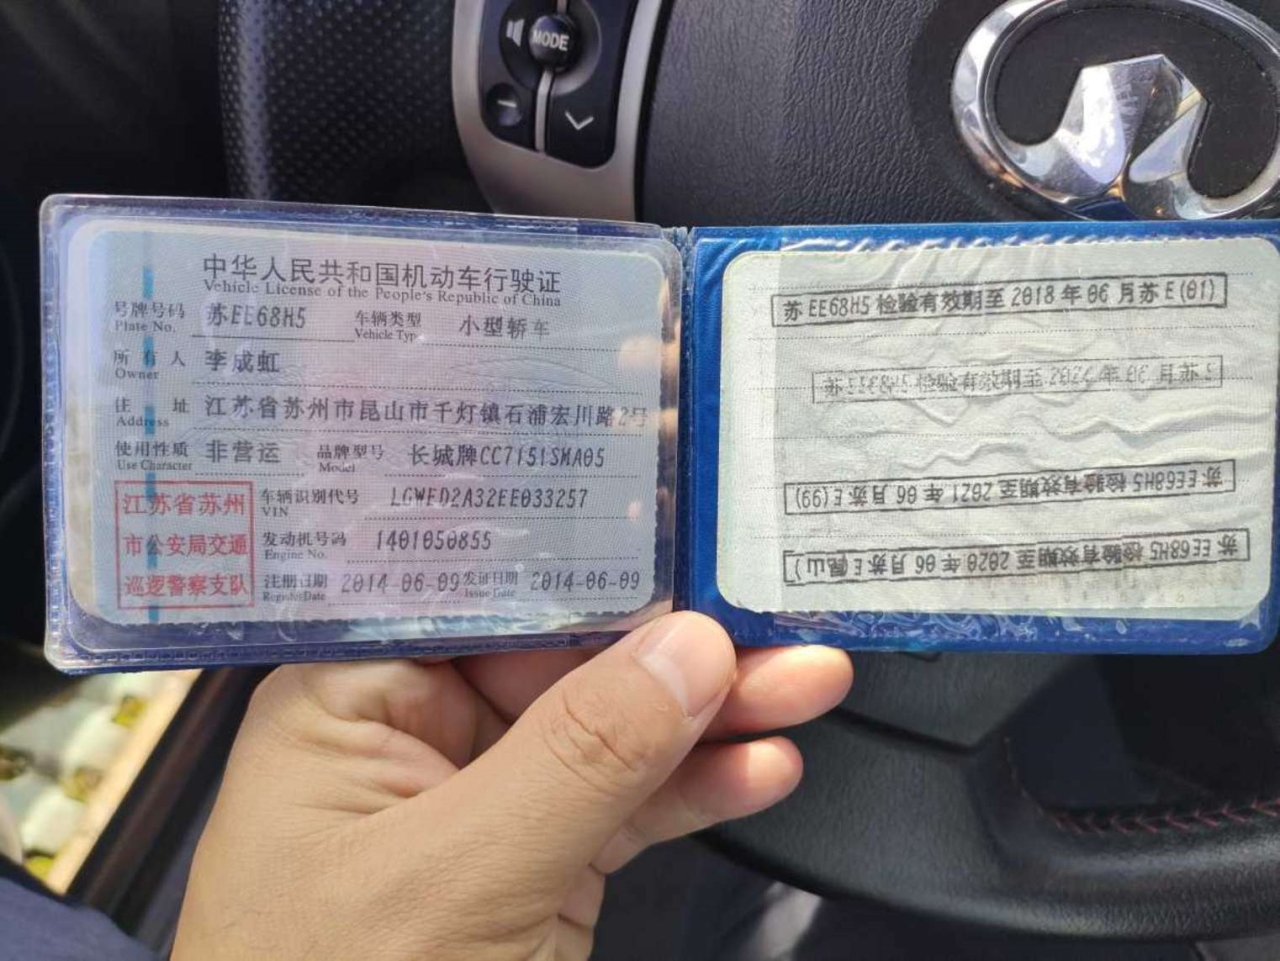 MODE
中华人民共和国机动车行驶证
Vehicle License of the People's Republic of China
号牌号码 苏EE68H5 车辆类型 小型轿车
Plate No. Vehicle Type
所有人 李成虹
Owner
住址 江苏省苏州市昆山市千灯镇石浦宏川路2号
Address
使用性质 非营运 品牌型号 长城牌CC7151SMA05
Use Character Model
江苏省苏州
市公安局交通
巡逻警察支队
车辆识别代号 LGWED2A32EE033257
VIN
发动机号码 1401050855
Engine No.
注册日期 2014-06-09 发证日期 2014-06-09
Register Date Issue Date
苏EE68H5检验有效期至2018年06月苏E(01)
检验有效期至 年06月苏E
苏EE68H5检验有效期至2021年06月苏E(99)
苏EE68H5检验有效期至2020年06月苏E(昆山)